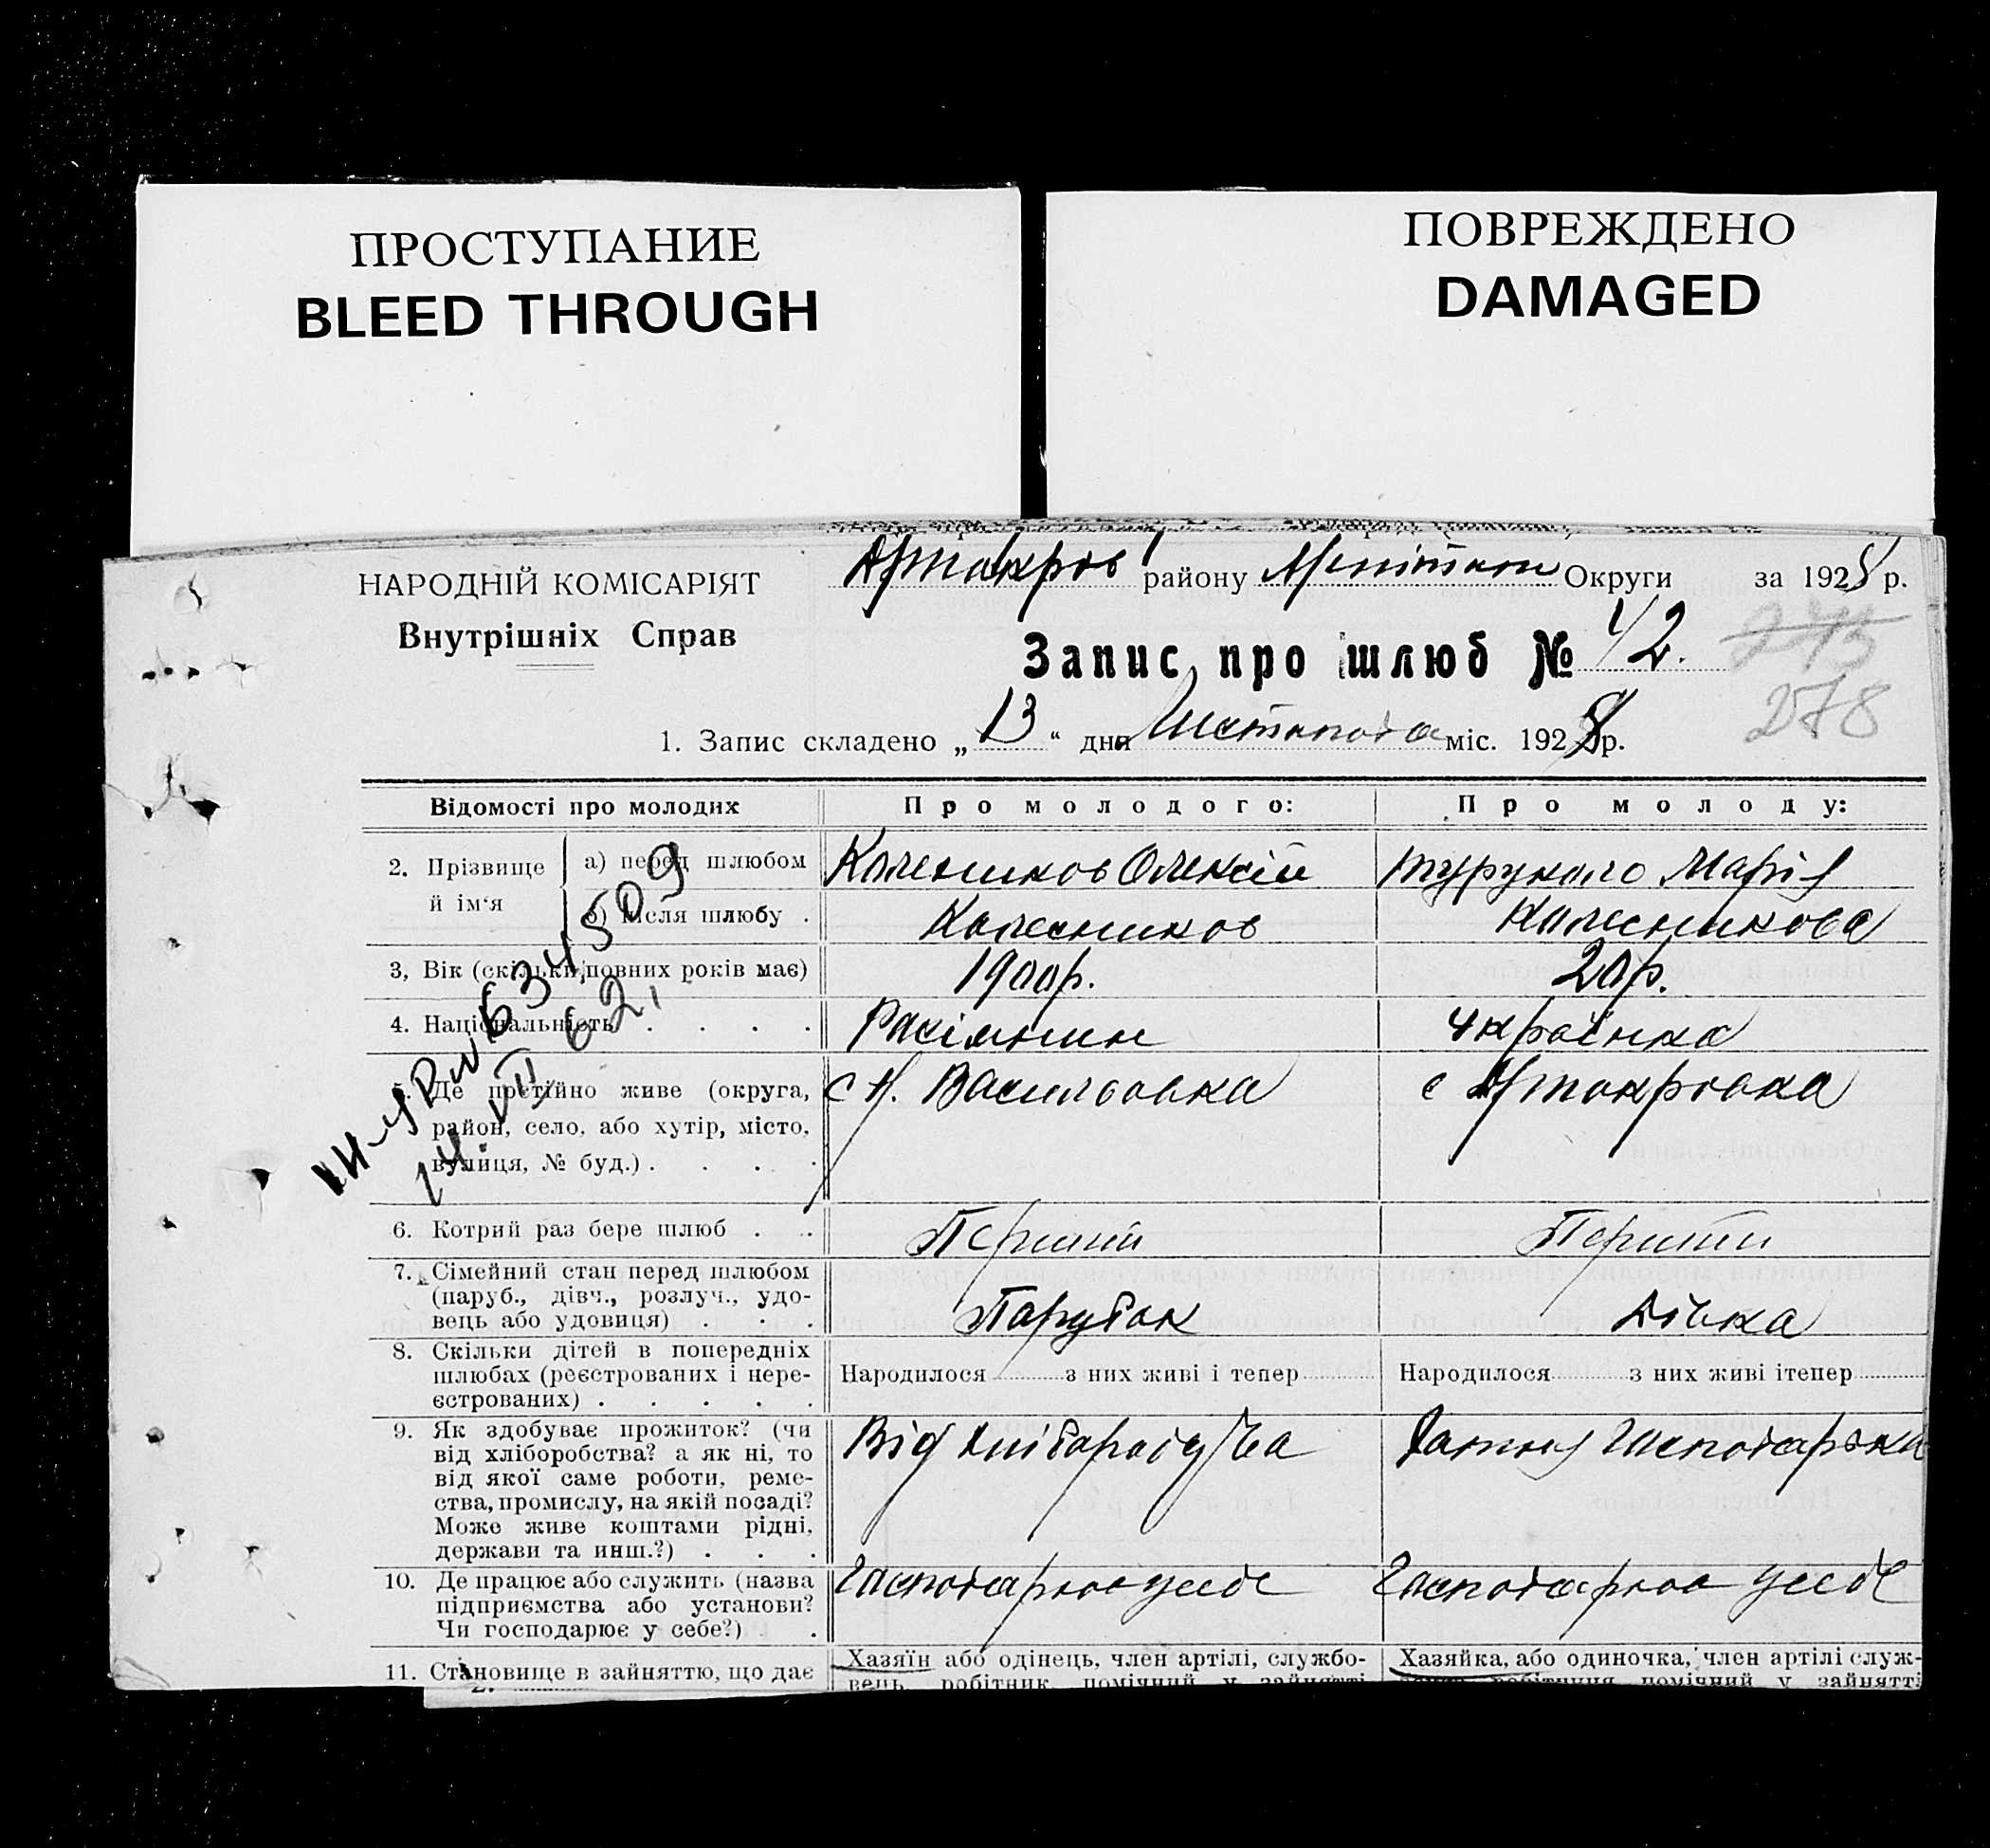 ПРОСТУПАНИЕ
BLEED THROUGH
ПОВРЕЖДЕНО
DAMAGED
НАРОДНІЙ КОМІСАРІЯТ
Внутрішніх Справ
району Округи за 1928 р.
Запис про шлюб № 42.
275
278
1. Запис складено „13“ дня Листопада міс. 1928 р.
Відомості про молодих
Про молодого:
Про молоду:
2. Прізвище й ім'я
а) перед шлюбом
Колесников Олексій
Марія
б) після шлюбу .
Колесников
Колесникова
3, Вік (скільки повних років має)
1900р.
20р.
4. Національність . . . .
українка
5. Де постійно живе (округа,
район, село, або хутір, місто,
вулиця, № буд.) . . . .
с Н. Васильовка
с
6. Котрий раз бере шлюб . .
Перший
7. Сімейний стан перед шлюбом
(паруб., дівч., розлуч., удо-
вець або удовиця) . . .
Парубок
Дівка
8. Скільки дітей в попередніх
шлюбах (реєстрованих і нере-
єстрованих) . . . . .
Народилося з них живі і тепер
Народилося з них живі ітепер
9. Як здобуває прожиток? (чи
від хліборобства? а як ні, то
від якої саме роботи, реме-
ства, промислу, на якій посаді?
Може живе коштами рідні,
держави та инш.?) . . .
Від
10. Де працює або служить (назва
підприємства або установи?
Чи господарює у себе?) .
11. Становище в зайняттю, що дає
Хазяїн або одінець, член артілі, службо-
вець, робітник, помічний у зайнятті
Хазяйка, або одиночка, член артілі служ-
помічний у зайнятті
634509
14. VII 62